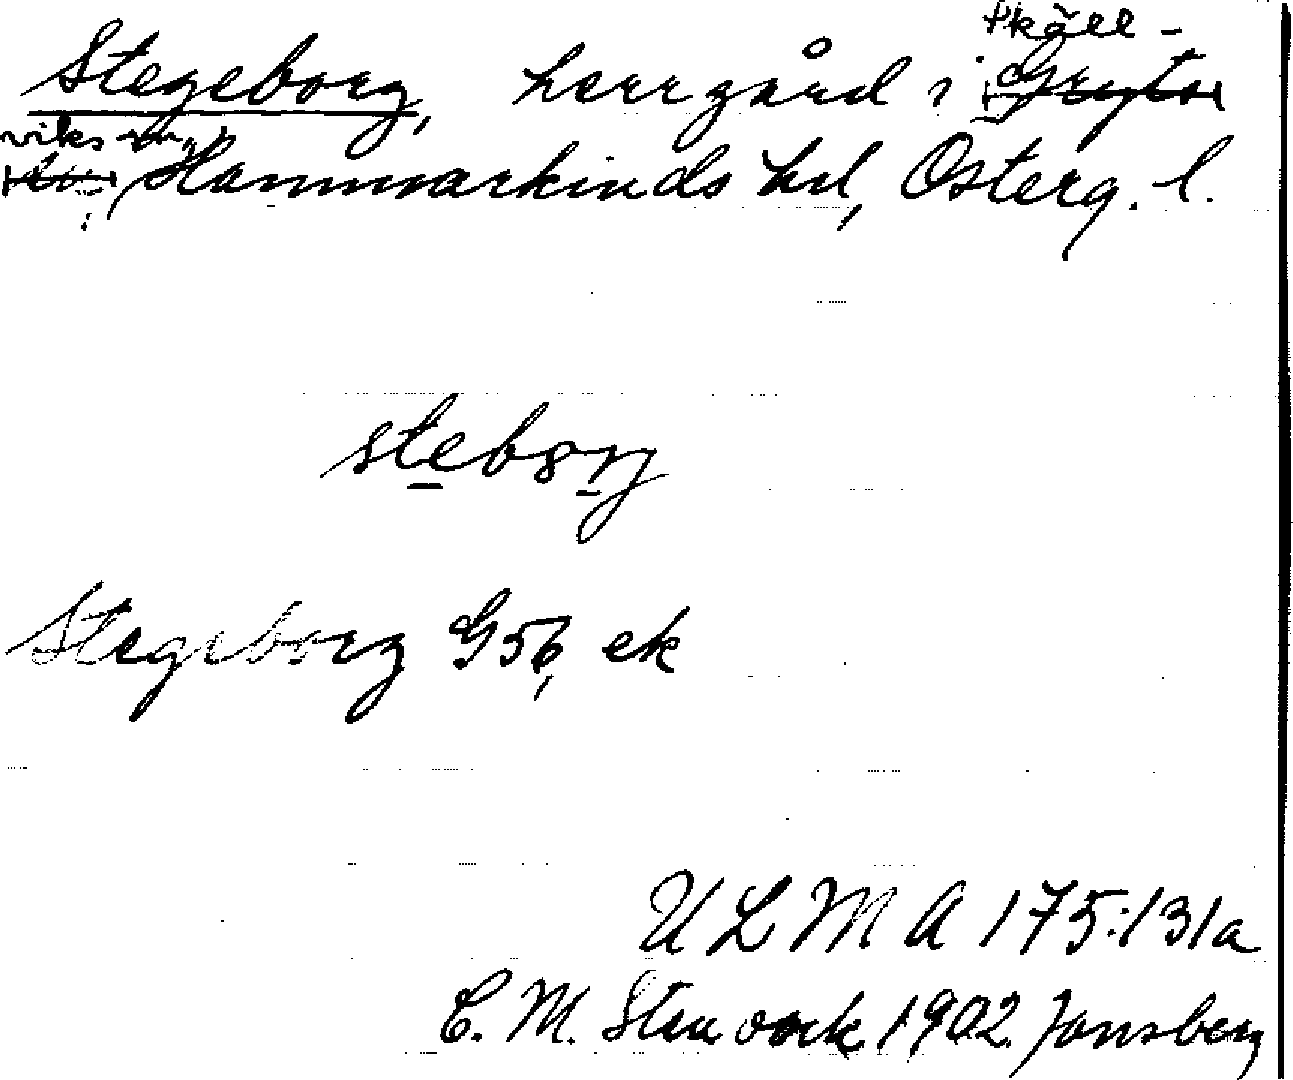 Stegeborg, herrgård i Skäll-
viks sn, Hammarkinds hd, Österg. l.
stebörj
Stegeborg G56, ek
ULMA 175:131a
C. M. Stenbock 1902 Jonsberg